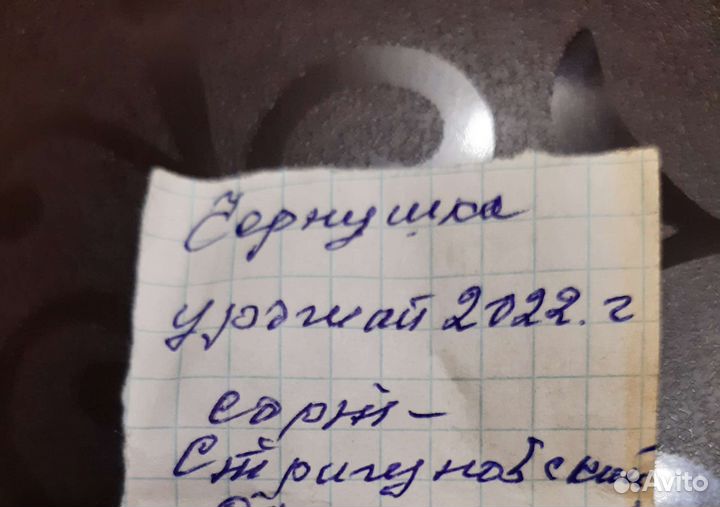 Чернушка
урожай 2022.г
сорт -
Стригуновский
Avito